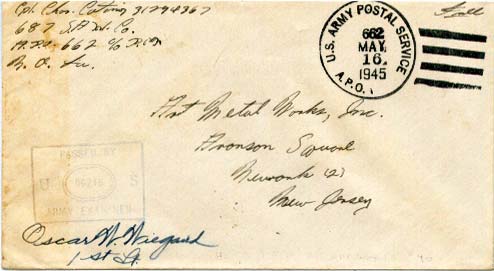 Cpl. Chas. Catino 31294367
687 S.A.W. Co.
A.P.O. 662 c/o P.M.
N.Y.
Free
U.S. ARMY POSTAL SERVICE
662
MAY
16
1945
A.P.O.
Art Metal Works, Inc.
Aronson Square
Newark (2)
New Jersey
PASSED BY
U S
06216
ARMY EXAMINER
Oscar W. Wiegand
1st Lt.